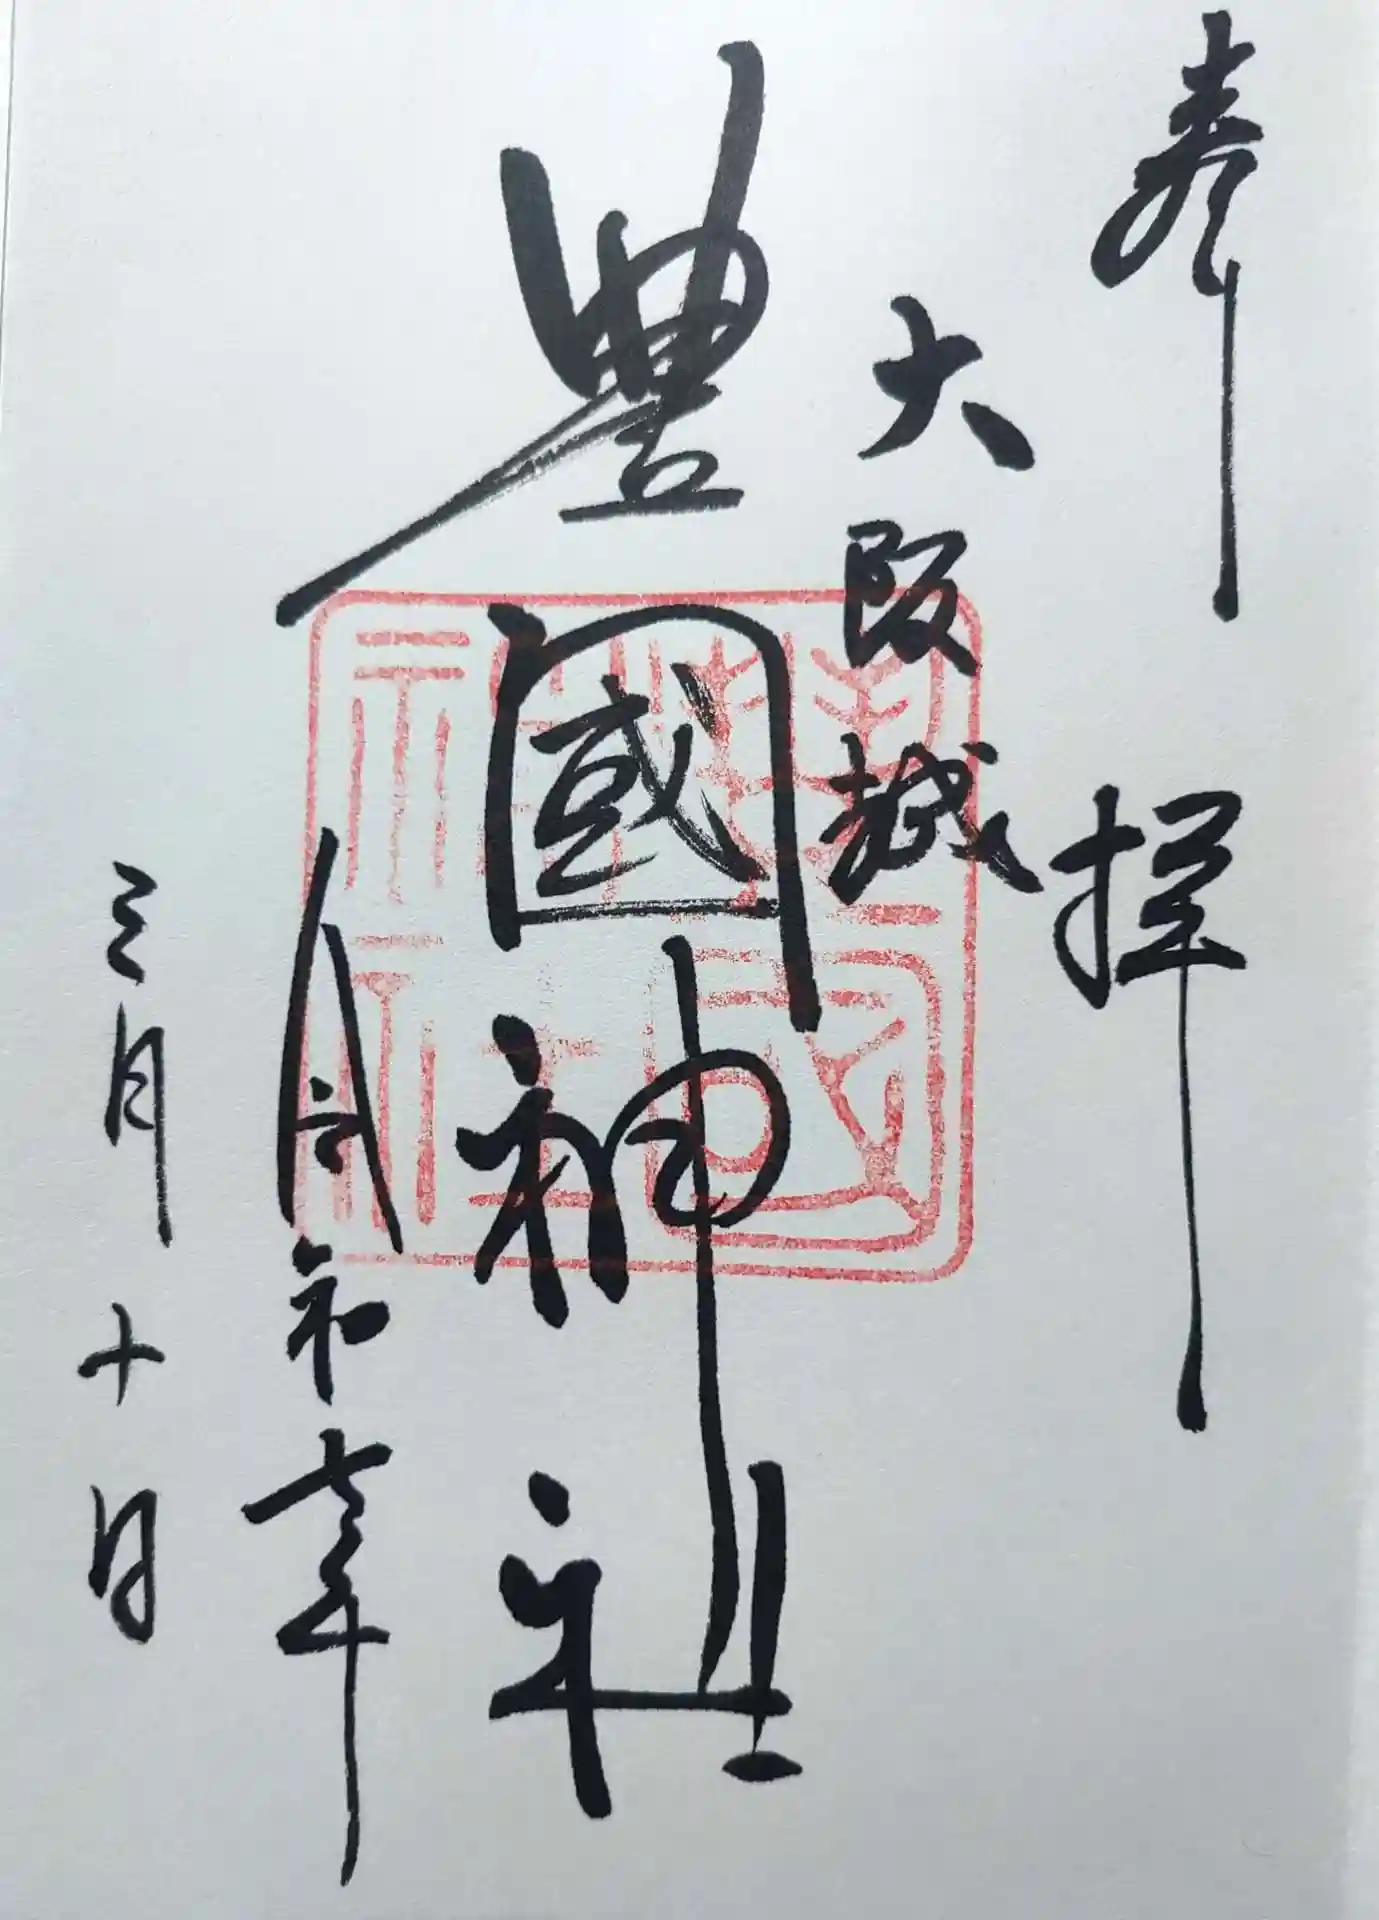 奉拝
大阪城
豐國神社
豐國神社
令和七年
三月十日